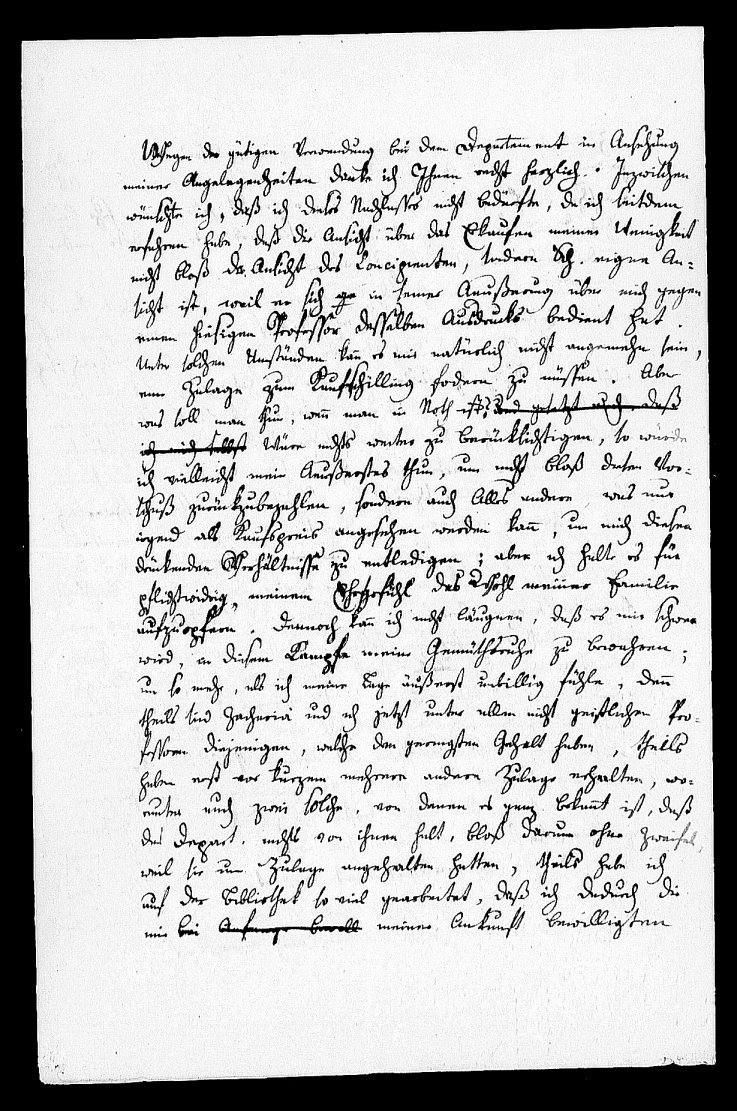 Wegen der gütigen Verwendung bei dem Departement in Ansehung
meiner Angelegenheiten danke ich Ihnen recht herzlich. Inzwischen
wünschte ich, daß ich dieses Nachlasses nicht bedürfte, da ich seitdem
erfahren habe, daß die Ansicht über das Erkaufen meiner Wenigkeit
nicht bloß die Ansicht des Concipienten, sondern Sch. eigne An-
sicht ist, weil er sich in seiner Aeußerung über mich gegen
einen hiesigen Professor desselben Ausdrucks bedient hat.
Unter solchen Umständen kann es mir natürlich nicht angenehm sein,
eine Zulage zum Kaufschilling fodern zu müssen. Aber
was soll man thun, wenn man in Noth ist? und gesetzt auch, daß
ich mich selbst Wäre nichts weiter zu berücksichtigen, so würde
ich vielleicht mein Aeußerstes thun, um nicht bloß diesen Vor-
schuß zurückzubezahlen, sondern auch Alles andere, was nur
irgend als Kaufpreis angesehen werden kann, um mich diesen
drückenden Verhältnisse zu entledigen; aber ich halte es für
pflichtwidrig, meinem Ehrgefühl das Wohl meiner Familie
aufzuopfern. Dennoch kann ich nicht läugnen, daß es mir schwer
wird, in diesem Kampfe meine Gemüthsruhe zu bewahren;
um so mehr, als ich meine Lage äußerst unbillig fühle, denn
theils sind Zachariä und ich jetzt unter allen nicht geistlichen Pro-
fessoren diejenigen, welche den geringsten Gehalt haben, theils
haben erst vor kurzem mehrere andere Zulage erhalten, wo-
runter auch zwei solche, von denen es ganz bekannt ist, daß
das Depart. nichts von ihnen hält, bloß darum ohne Zweifel,
weil sie um Zulage angehalten hatten, theils habe ich
auf der Bibliothek so viel gearbeitet, daß ich dadurch die
mir bei Anfangs meiner Ankunft bewilligten